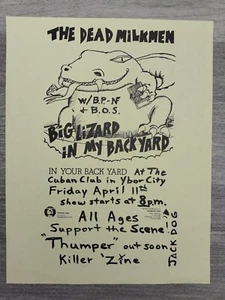 THE DEAD MILKMEN
w/ B.P.-N
+ B.O.S.
BiG LiZARD
iN MY BACKYARD
IN YOUR BACK YARD At The
Cuban Club in Ybor City
Friday April 11th
show starts at 8p.m.
All Ages
"Support the Scene!"
"Thumper" out soon
Killer 'Zine
JACK DOG